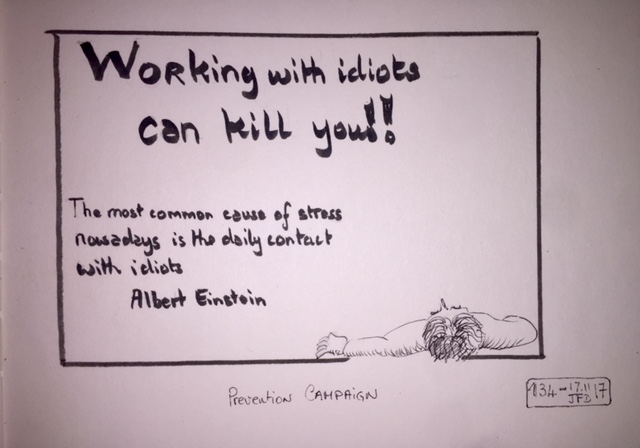 Working with idiots
can kill you!!
The most common cause of stress
nowadays is the daily contact
with idiots
Albert Einstein
Prevention CAMPAIGN
134 - 17.11 17
JFD